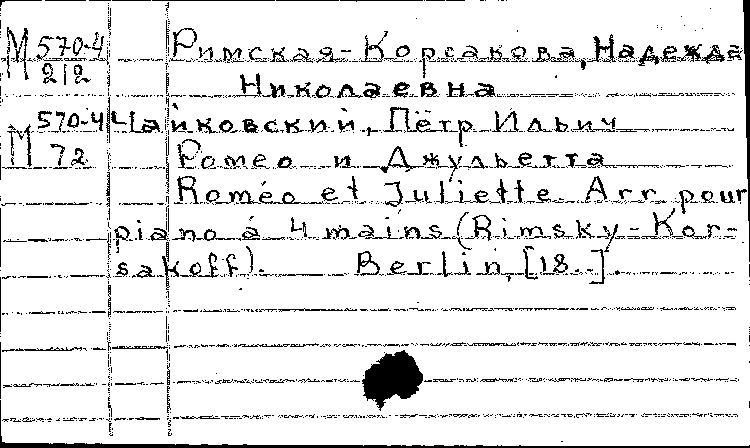 М 570-4/212 Римская-Корсакова, Надежда
Николаевна
М 570-4/72 Чайковский, Пётр Ильич
Ромео и Джульетта
Roméo et Juliette. Arr. pour
piano à 4 mains (Rimsky-Kor-
sakoff). Berlin, [18..].